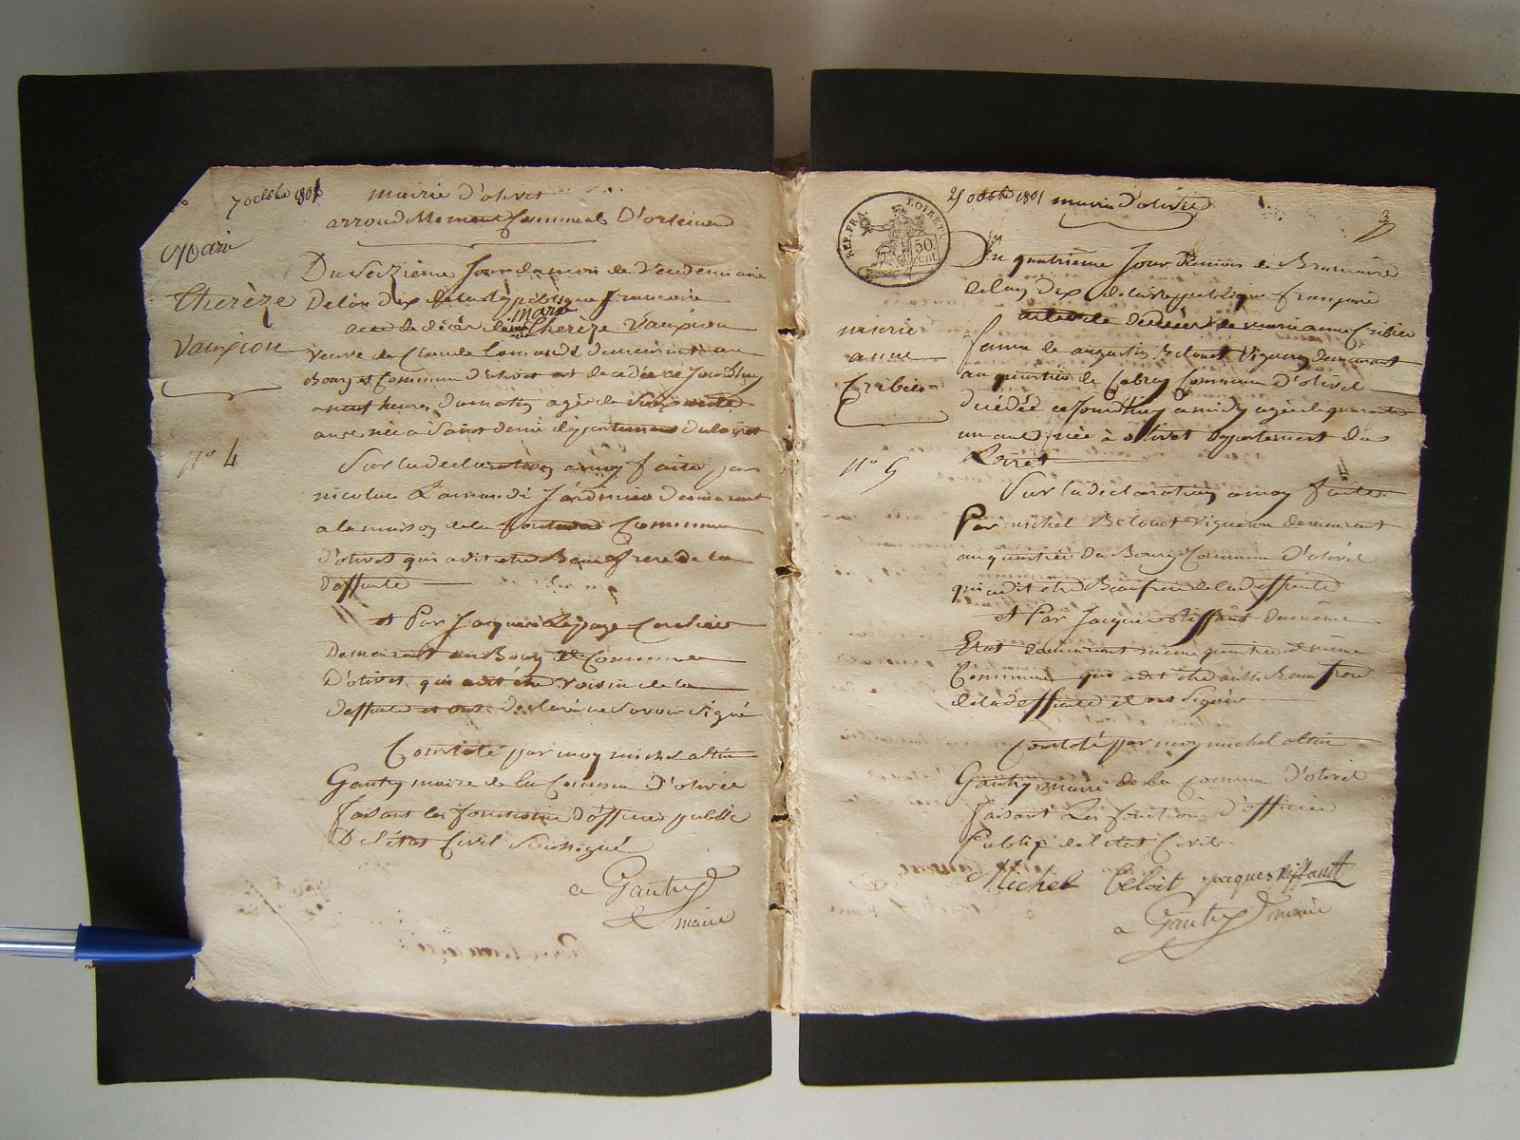 7 octobre 1801
mairie d'olivet
arrondissement Communal D'orleans
Marie
Therèze
Vampion
n° 4
Du Seizième Jour du mois de Vendemiaire
De l'an dix de la République francaise
acte de décès de marie Therèze Vampion
veuve de Claude demeurante au
Bourg et Commune d'olivet est decedée ce Jourdhuy
a neuf heures du matin agée de Soixante
ans née a Saint denis département du loiret
Sur la declaration a moy faite par
nicolas Jardinier demeurant
a la maison de la Commune
d'olivet qui a dit etre Beaufrere de la
deffunte
et Par Jacques Lepage Cordier
Demeurant au Bourg de Commune
D'olivet qui a dit etre voisin de la
deffunte et ont déclaré ne Savoir Signé
Constaté par moy michel altin
Gautry maire de la Commune D'olivet
faisant les fonctions d'officier public
De l'état Civil Soussigné
a Gautry
maire
25 octobre 1801
mairie d'olivet
3
REP. FRA.
LOIRET
50
CENT.
marie
anne
Cribier
n° 5
Du quatrième Jour du mois de Brumaire
de l'an dix de la Republique française
acte de decées de marie anne Cribier
femme de augustin Belouet Vigneron demeurant
au quartier de Cabrey Commune D'olivet
decédée ce Jourdhuy a midy agée de quarante
un ans née à olivet departement du
Loiret
Sur la declaration a moy faite
Par michel Belouet vigneron demeurant
au quartier du Bourg Commune D'olivet
qui a dit etre Beaufrere de la deffunte
et Par Jacques Riffault du même
Etat demeurant même quartier et même
Commune qui a dit etre aussi Beaufrere
de la deffunte et ont Signés
Constaté par moy michel altin
Gautry maire de la Commune d'olivet
faisant Les fonctions d'officier
Public de l'etat Civil
Michel beloit jacques Riffault
a Gautry maire